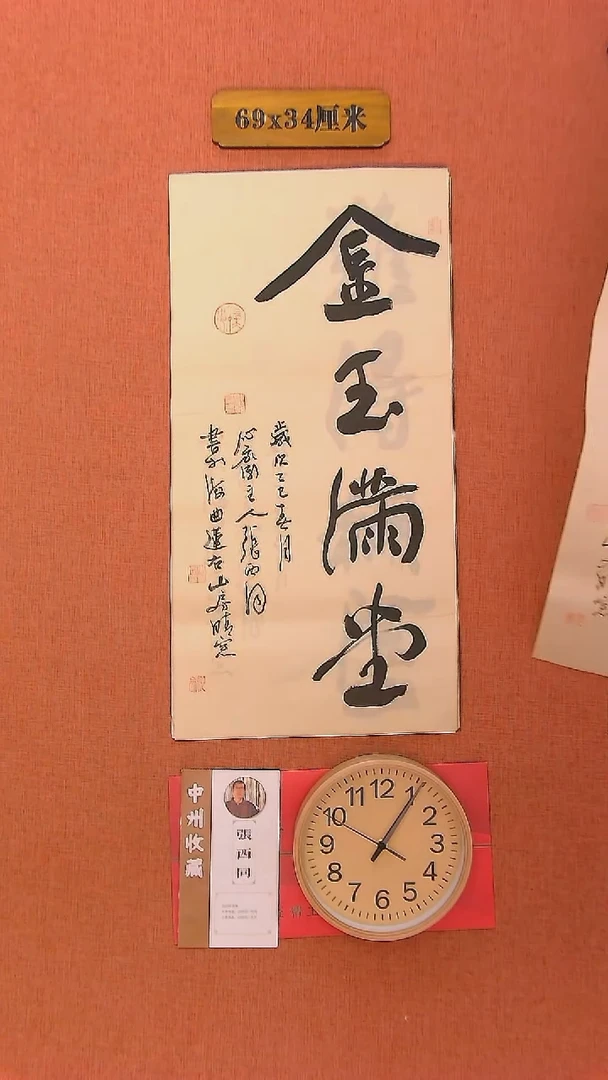 69x34厘米
金玉满堂
歲次乙巳春月
心象主人張西同
書於海曲蓮右山房晴窓
中州收藏
張西同
12
1
2
3
4
5
6
7
8
9
10
11